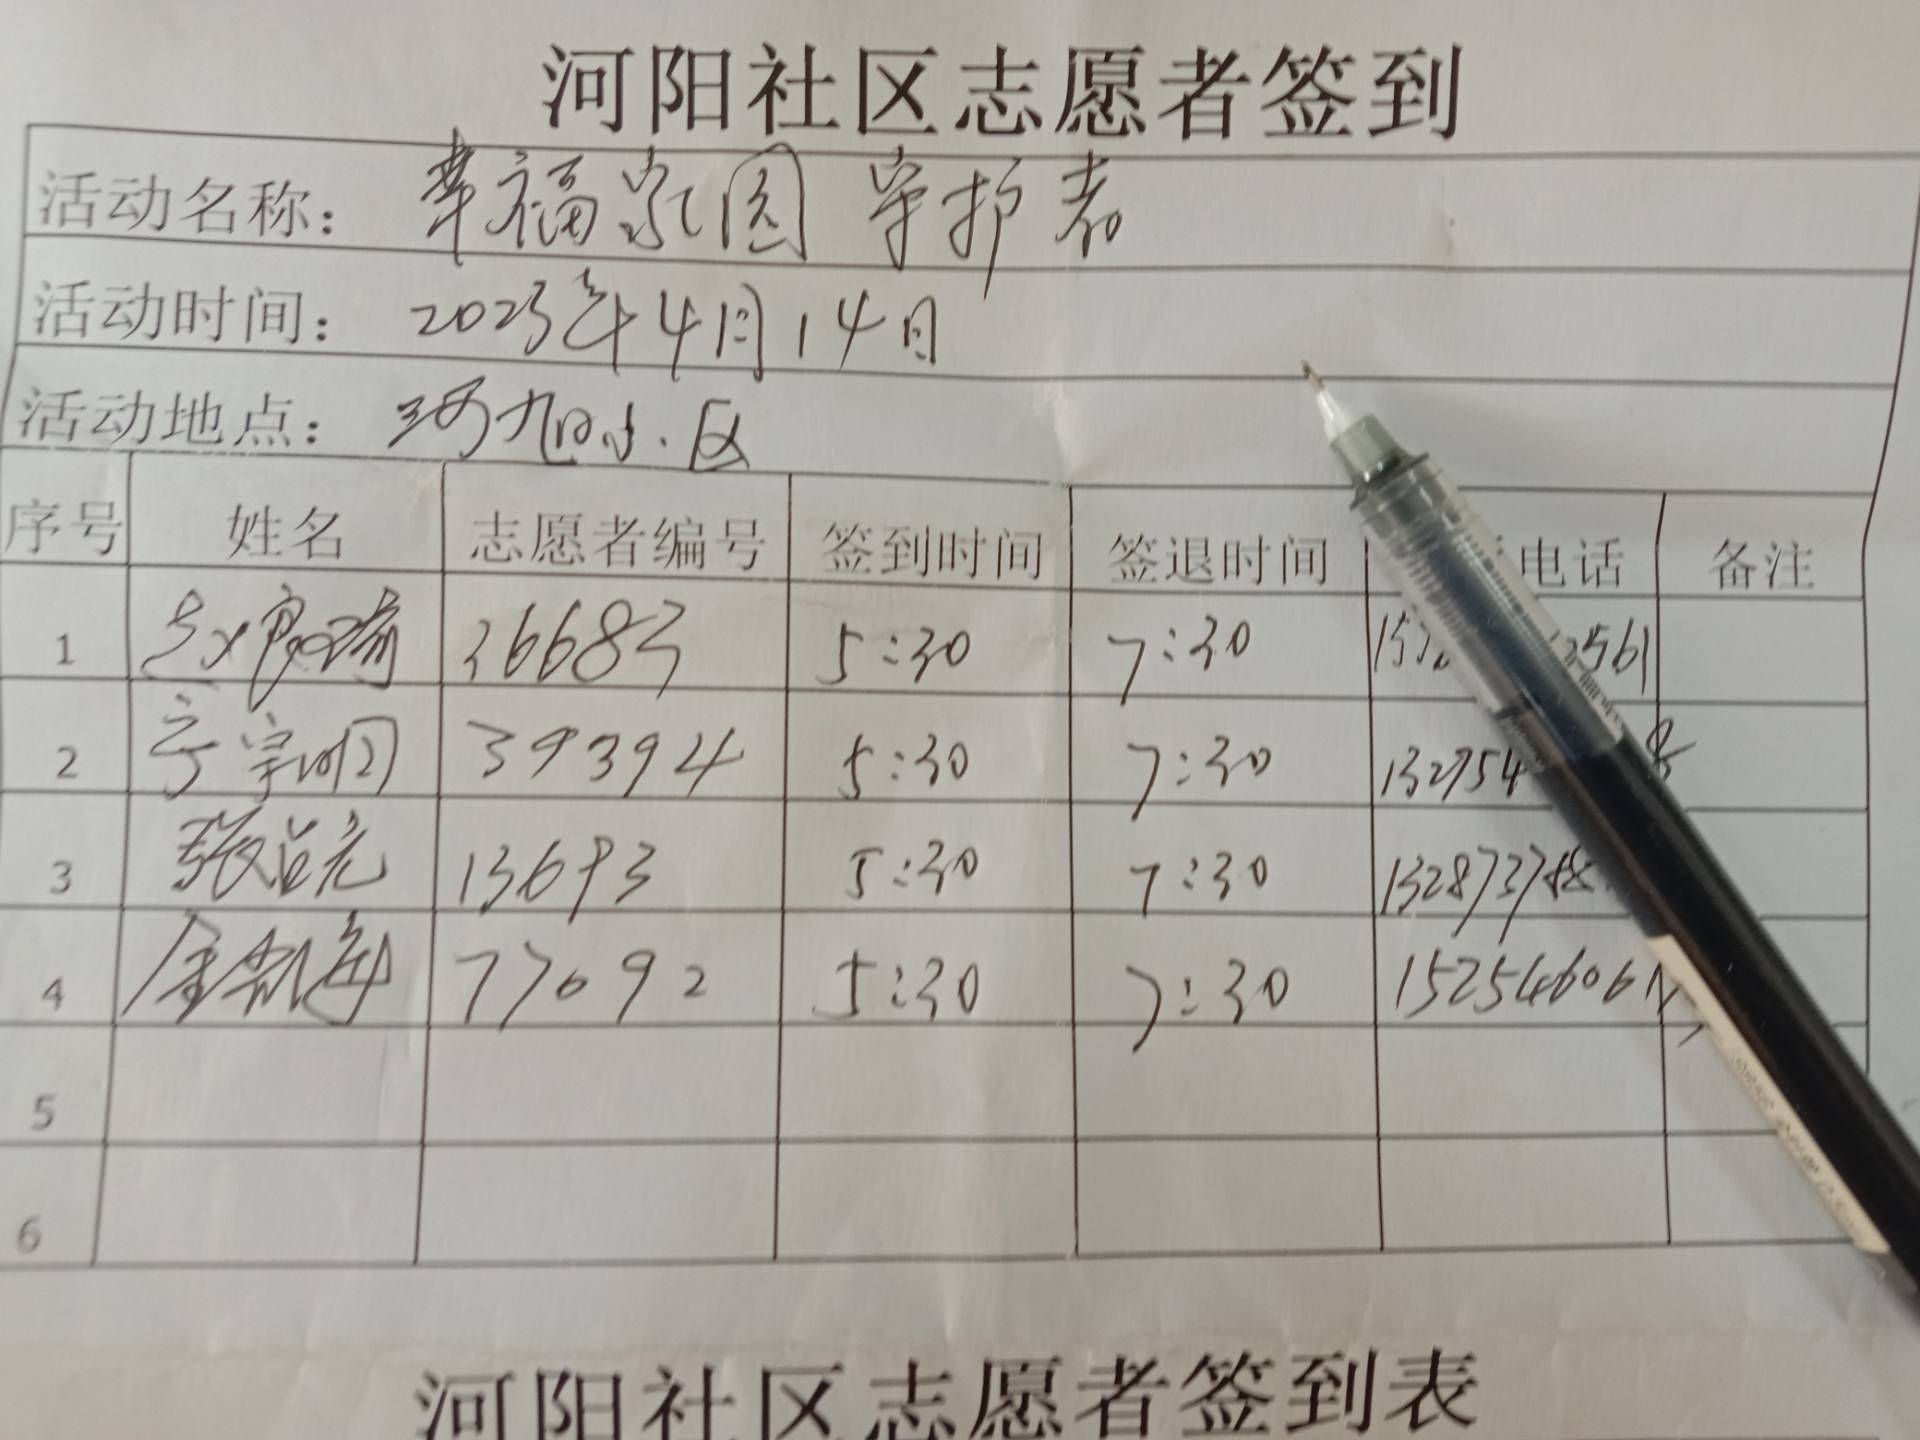 河阳社区志愿者签到
活动名称： 幸福家园 守护者
活动时间： 2023年4月14日
活动地点： 河旭小区
序号 姓名 志愿者编号 签到时间 签退时间 电话 备注
1 36683 5:30 7:30
2 39394 5:30 7:30 132754
3 13693 5:30 7:30
4 77092 5:30 7:30
5
6
河阳社区志愿者签到表